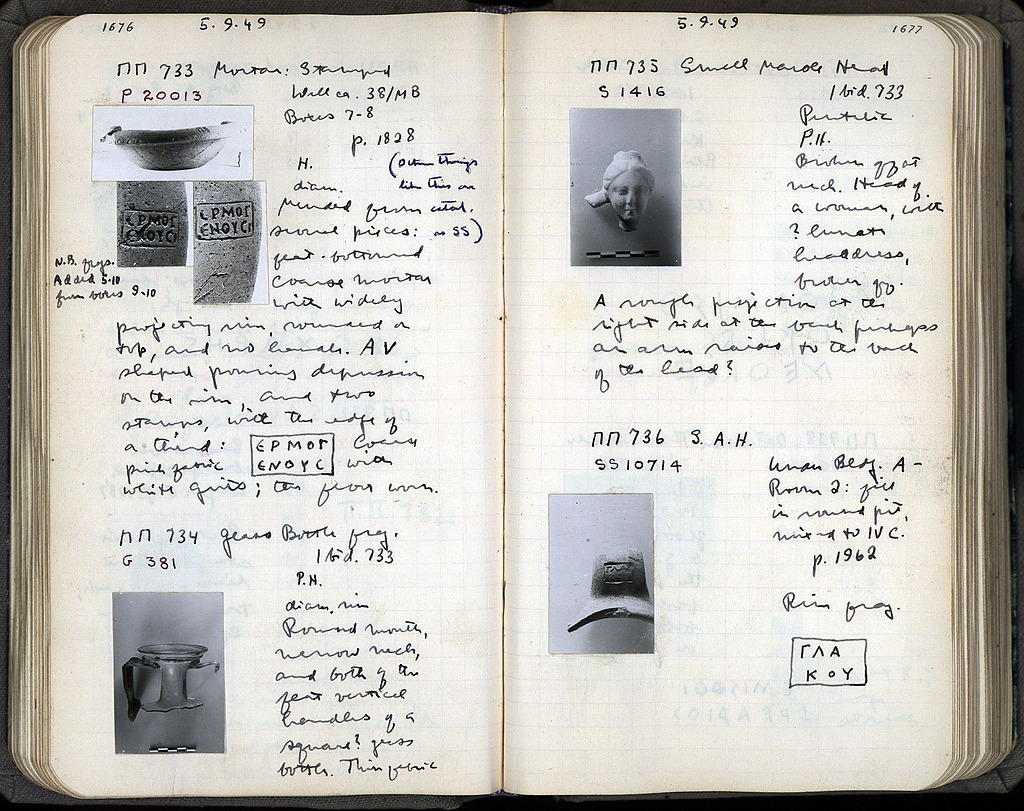 1676
5.9.49
ΠΠ 733 Mortar: Stamped
P 20013
Well ca. 38/MB
Boxes 7-8
p. 1828
H.
diam.
Mended from
several pieces:
flat-bottomed
coarse mortar
with widely
(Other things
like this on
catal.
as SS)
ΕΡΜΟΓ
ΕΝΟΥϹ
ΕΡΜΟΓ
ΕΝΟΥϹ
N.B. frags.
Added 5-10
from boxes 9-10
projecting rim, rounded on
top, and no handle. A V
shaped pouring depression
on the rim, and two
stamps, with the edge of
a third:
ΕΡΜΟΓ
ΕΝΟΥϹ
Coarse
pink fabric with
white grits; the floor worn.
ΠΠ 734 Glass Bottle frag.
G 381
Ibid. 733
P.H.
diam. rim
Round mouth,
narrow neck,
and both of the
flat vertical
handles of a
square? glass
bottle. Thin fabric
1677
5.9.49
ΠΠ 735 Small Marble Head
S 1416
Ibid. 733
Pentelic
P.H.
Broken off at
neck. Head of
a woman, with
? lunate
headdress,
broken off.
A rough projection at the
right side at the back perhaps
an arm raised to the back
of the head?
ΠΠ 736 S.A.H.
SS 10714
Bldg. A-
Room 2: fill
in round pit,
mixed to IV C.
p. 1962
Rim frag.
ΓΛΑ
ΚΟΥ